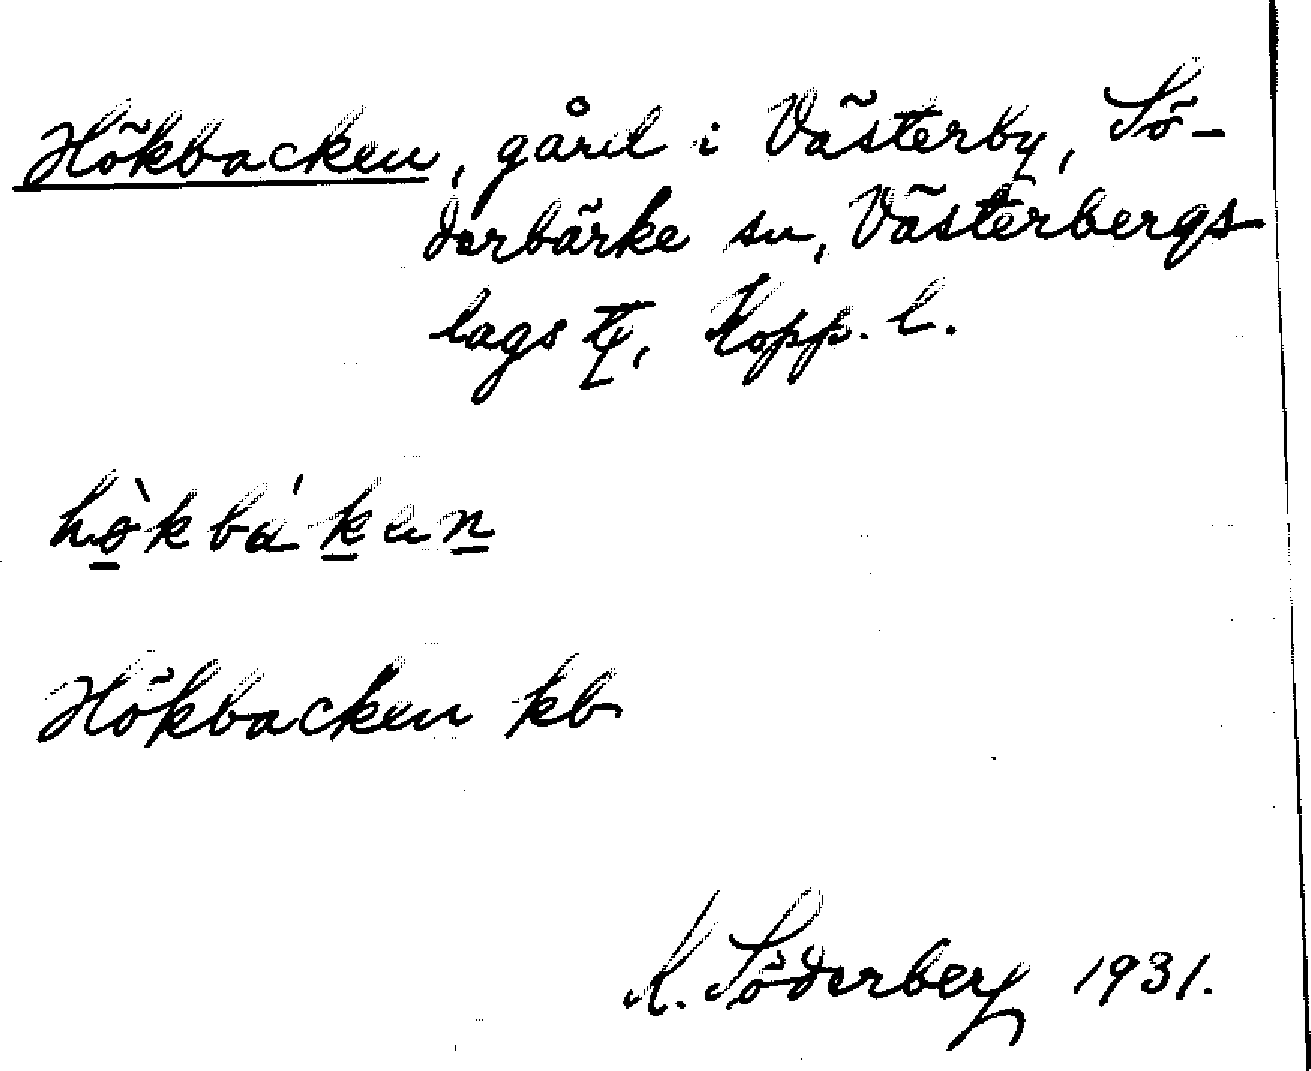 Hökbacken, gård i Västerby, Sö-
derbärke sn, Västerbergs
lags tg, Kopp. l.
hò̲kbá k̲en̲
Hökbacken kb
K. Söderberg 1931.